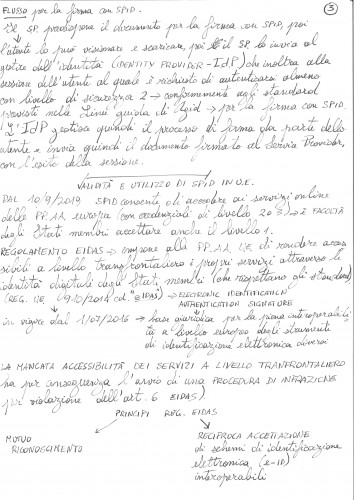 FLUSSO per la firma con SPID. 3
Il SP. predispone il documento per la firma con SPID, poi
l'utente lo può visionare e scaricare, poi il SP. lo invia al
gestore dell'identità (IDENTITY PROVIDER - IdP) che inoltra alla
sessione dell'utente al quale è richiesto di autenticarsi almeno
con livello di sicurezza 2 → conformemente agli standard
previsti nelle Linee guida di Agid → per la firma con SPID.
L'IdP gestisce quindi il processo di firma da parte dello
utente e invia quindi il documento firmato al Service Provider,
con l'esito della sessione.
VALIDITÀ E UTILIZZO DI SPID IN U.E.
DAL 10/9/2019 SPID consente di accedere ai servizi online
delle PP.AA europee (con credenziali di livello 2 o 3) → è FACOLTÀ
degli Stati membri accettare anche il livello 1.
REGOLAMENTO EIDAS → impone alla PP.AA. UE di rendere acces
sibili a livello transfrontaliero i propri servizi attraverso le
identità digitali degli Stati membri (che rispettano gli standard)
(REG. UE. 910/2014 cd. "eIDAS) → ELECTRONIC IDENTIFICATION
AUTHENTICATION SIGNATURE
in vigore dal 1/07/2016 → base giuridica per la piena interoperabili
tà a livello europeo degli strumenti
di identificazione elettronica diversi
LA MANCATA ACCESSIBILITÀ DEI SERVIZI A LIVELLO TRANFRONTALIERO
ha per conseguenza l'avvio di una PROCEDURA DI INFRAZIONE
per violazione dell'art. 6 EIDAS)
PRINCIPI REG. EIDAS
MUTUO
RICONOSCIMENTO
RECIPROCA ACCETTAZIONE
di schemi di identificazione
elettronica (e-ID)
interoperabili